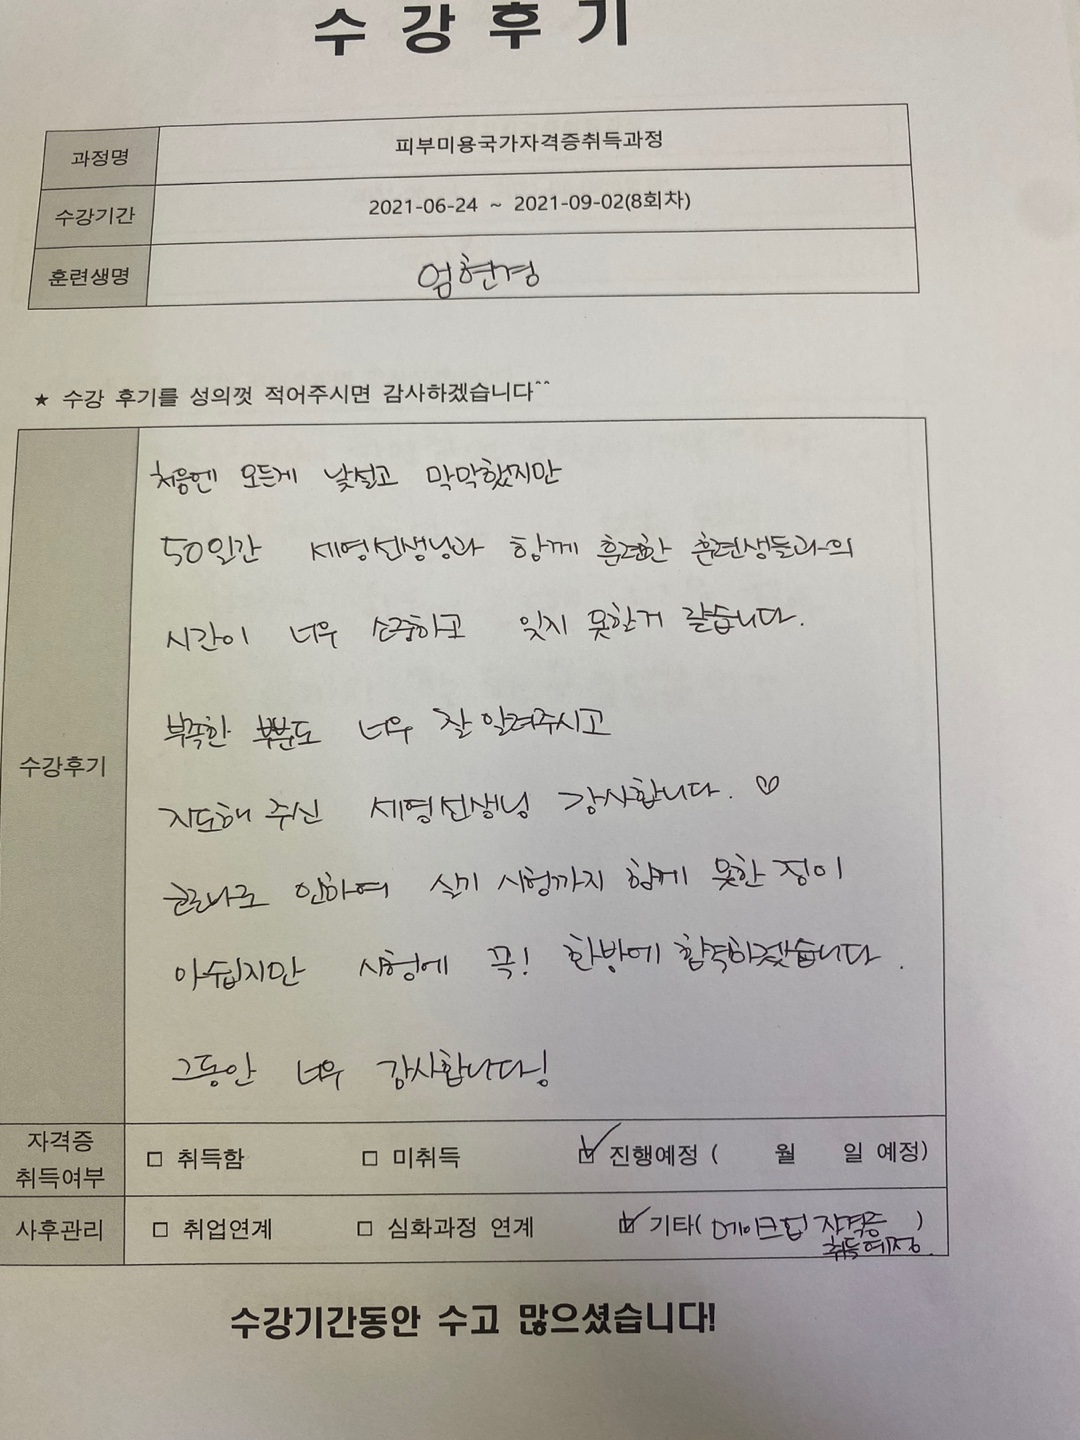 수 강 후 기
과정명 피부미용국가자격증취득과정
수강기간 2021-06-24 ~ 2021-09-02(8회차)
훈련생명 엄현경
★ 수강 후기를 성의껏 적어주시면 감사하겠습니다^^
처음엔 모든게 낯설고 막막했지만
50일간 세영선생님과 함께 훈련한 훈련생들과의
시간이 너무 소중하고 잊지 못할거 같습니다.
부족한 부분도 너무 잘 알려주시고
수강후기
지도해 주신 세영선생님 감사합니다. ♡
코로나로 인하여 실기 시험까지 함께 못한 점이
아쉽지만 시험에 꼭! 한방에 합격하겠습니다.
그동안 너무 감사합니다!
자격증
취득여부 □ 취득함 □ 미취득 ☑ 진행예정 ( 월 일 예정)
사후관리 □ 취업연계 □ 심화과정 연계 ☑ 기타( 메이크업 자격증 )
취득예정.
수강기간동안 수고 많으셨습니다!